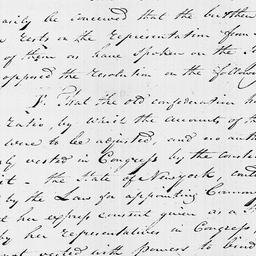 easily be conceived that the burthen
rests on the representation from
of them as have spoken on the
opposed the resolution on the follow
1. That the old confederation h
ratio, by which the amounts of th
were to be adjusted, and no auth
ly vested in Congress by the consti
it - the State of Newyork, onl
by the Law for appointing Commiss
ne her express consent given as a S
by her representatives in Congress,
not vested with powers to bind